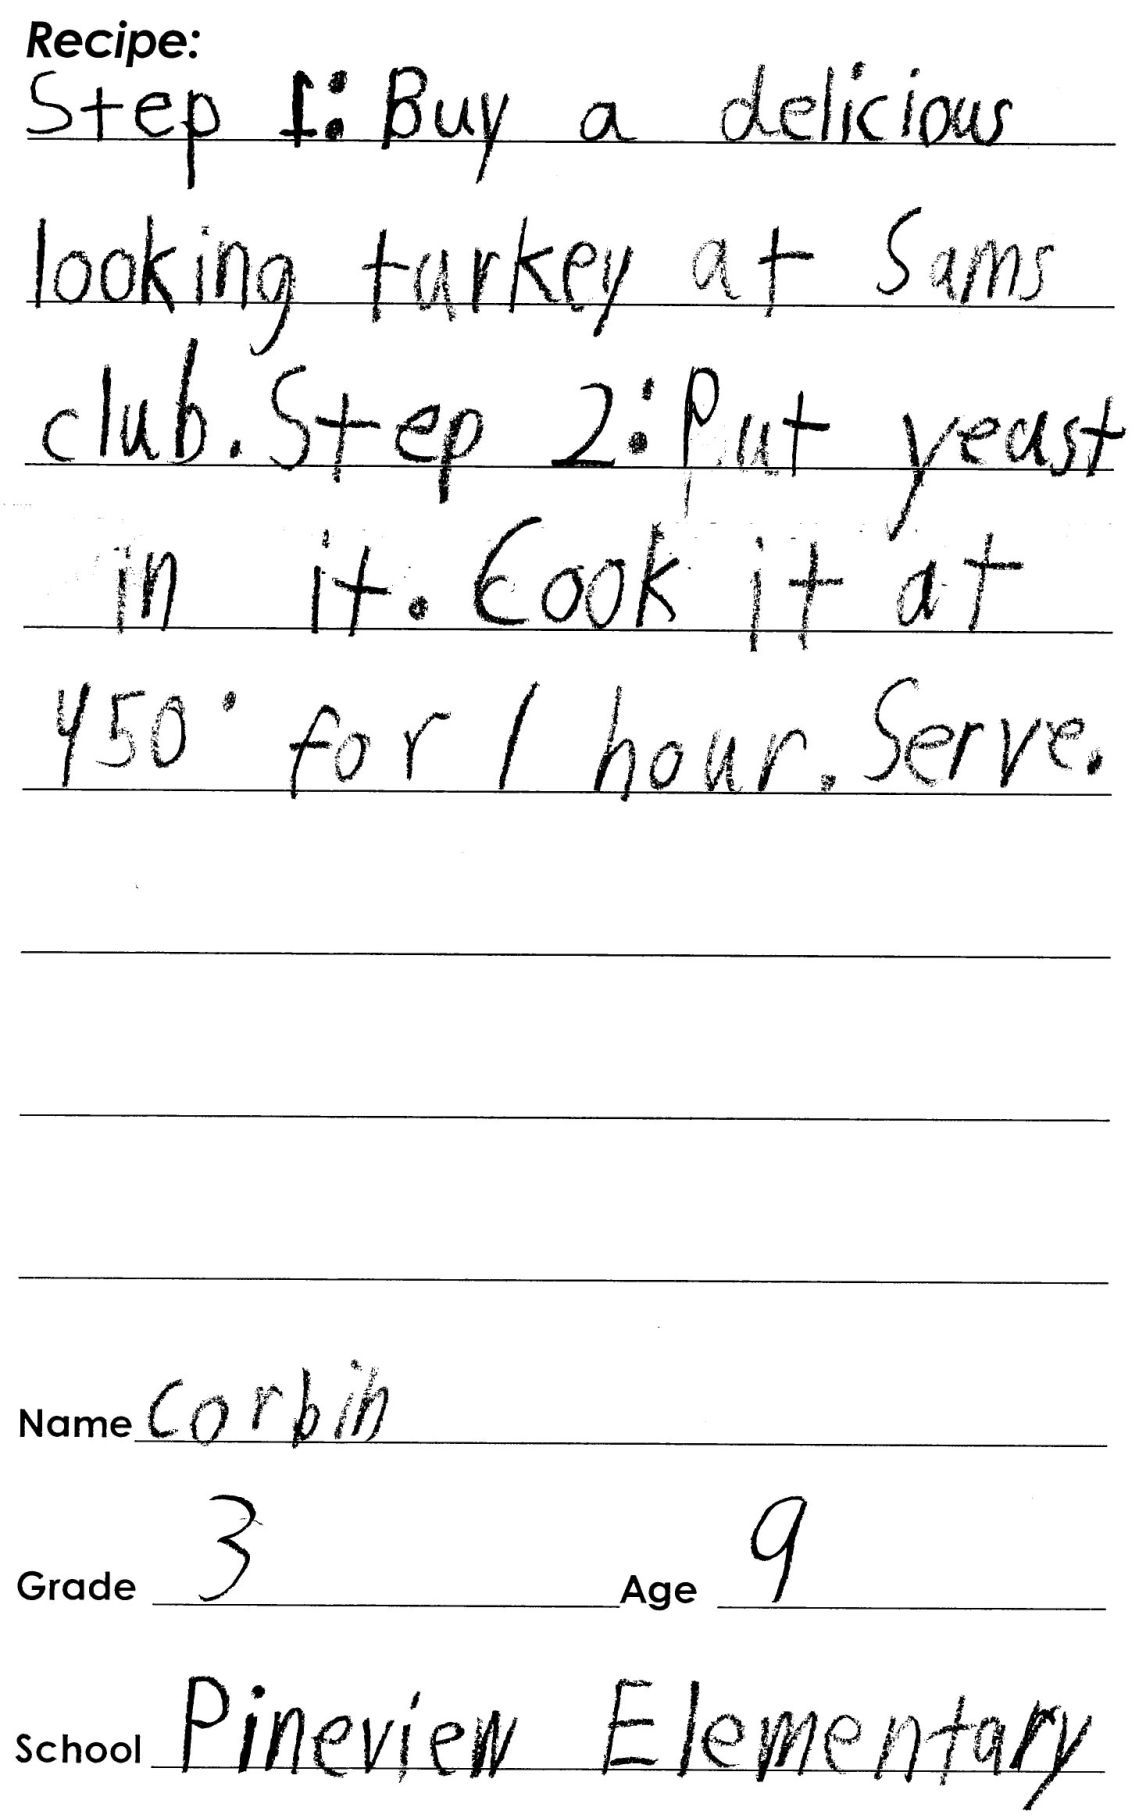 Recipe:
Step 1: Buy a delicious
looking turkey at Sams
club. Step 2: Put yeast
in it. Cook it at
450° for 1 hour. Serve.
Name Corbin
Grade 3 Age 9
School Pineview Elementary